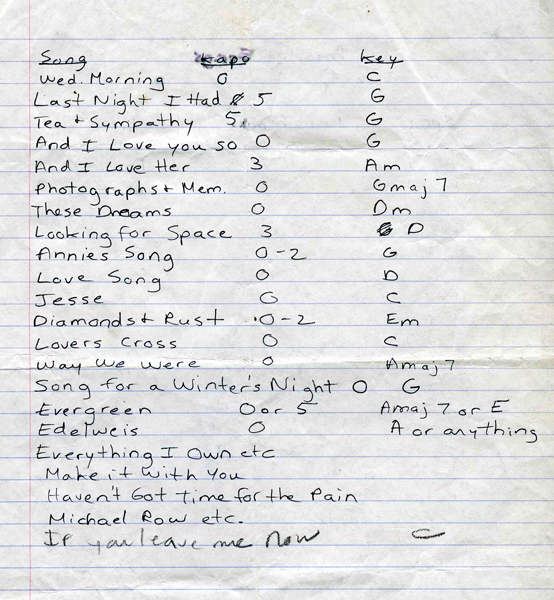 Song Kapo Key
Wed. Morning 0 C
Last Night I Had 5 G
Tea + Sympathy 5 G
And I Love you so 0 G
And I Love Her 3 Am
Photographs + Mem. 0 Gmaj 7
These Dreams 0 Dm
Looking for Space 3 D
Annies Song 0-2 G
Love Song 0 D
Jesse 0 C
Diamonds + Rust 0-2 Em
Lovers Cross 0 C
Way We Were 0 Amaj 7
Song for a Winter's Night 0 G
Evergreen 0 or 5 Amaj 7 or E
Edelweis 0 A or anything
Everything I Own etc
Make it with You
Haven't Got Time for the Pain
Michael Row etc.
If you leave me now C